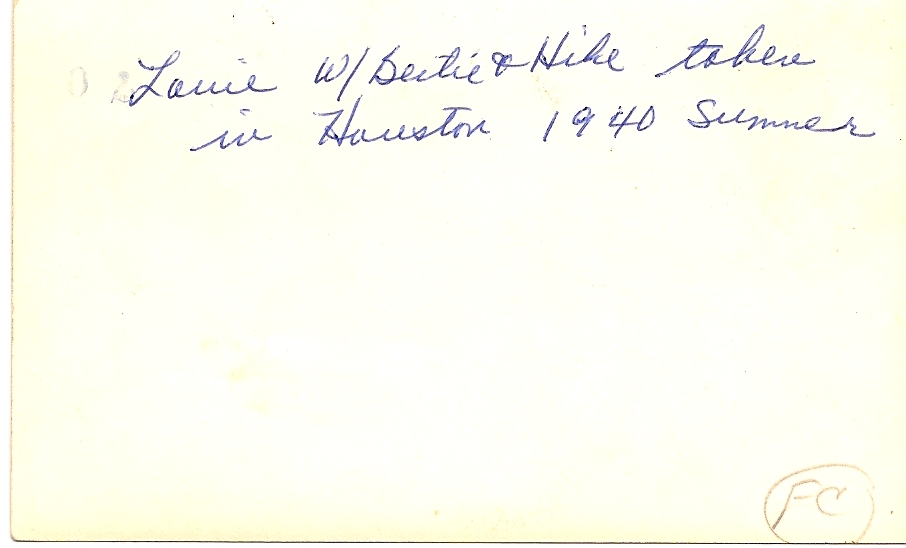 Louie W/ Bertie & Hike taken
in Houston 1940 Summer
FC